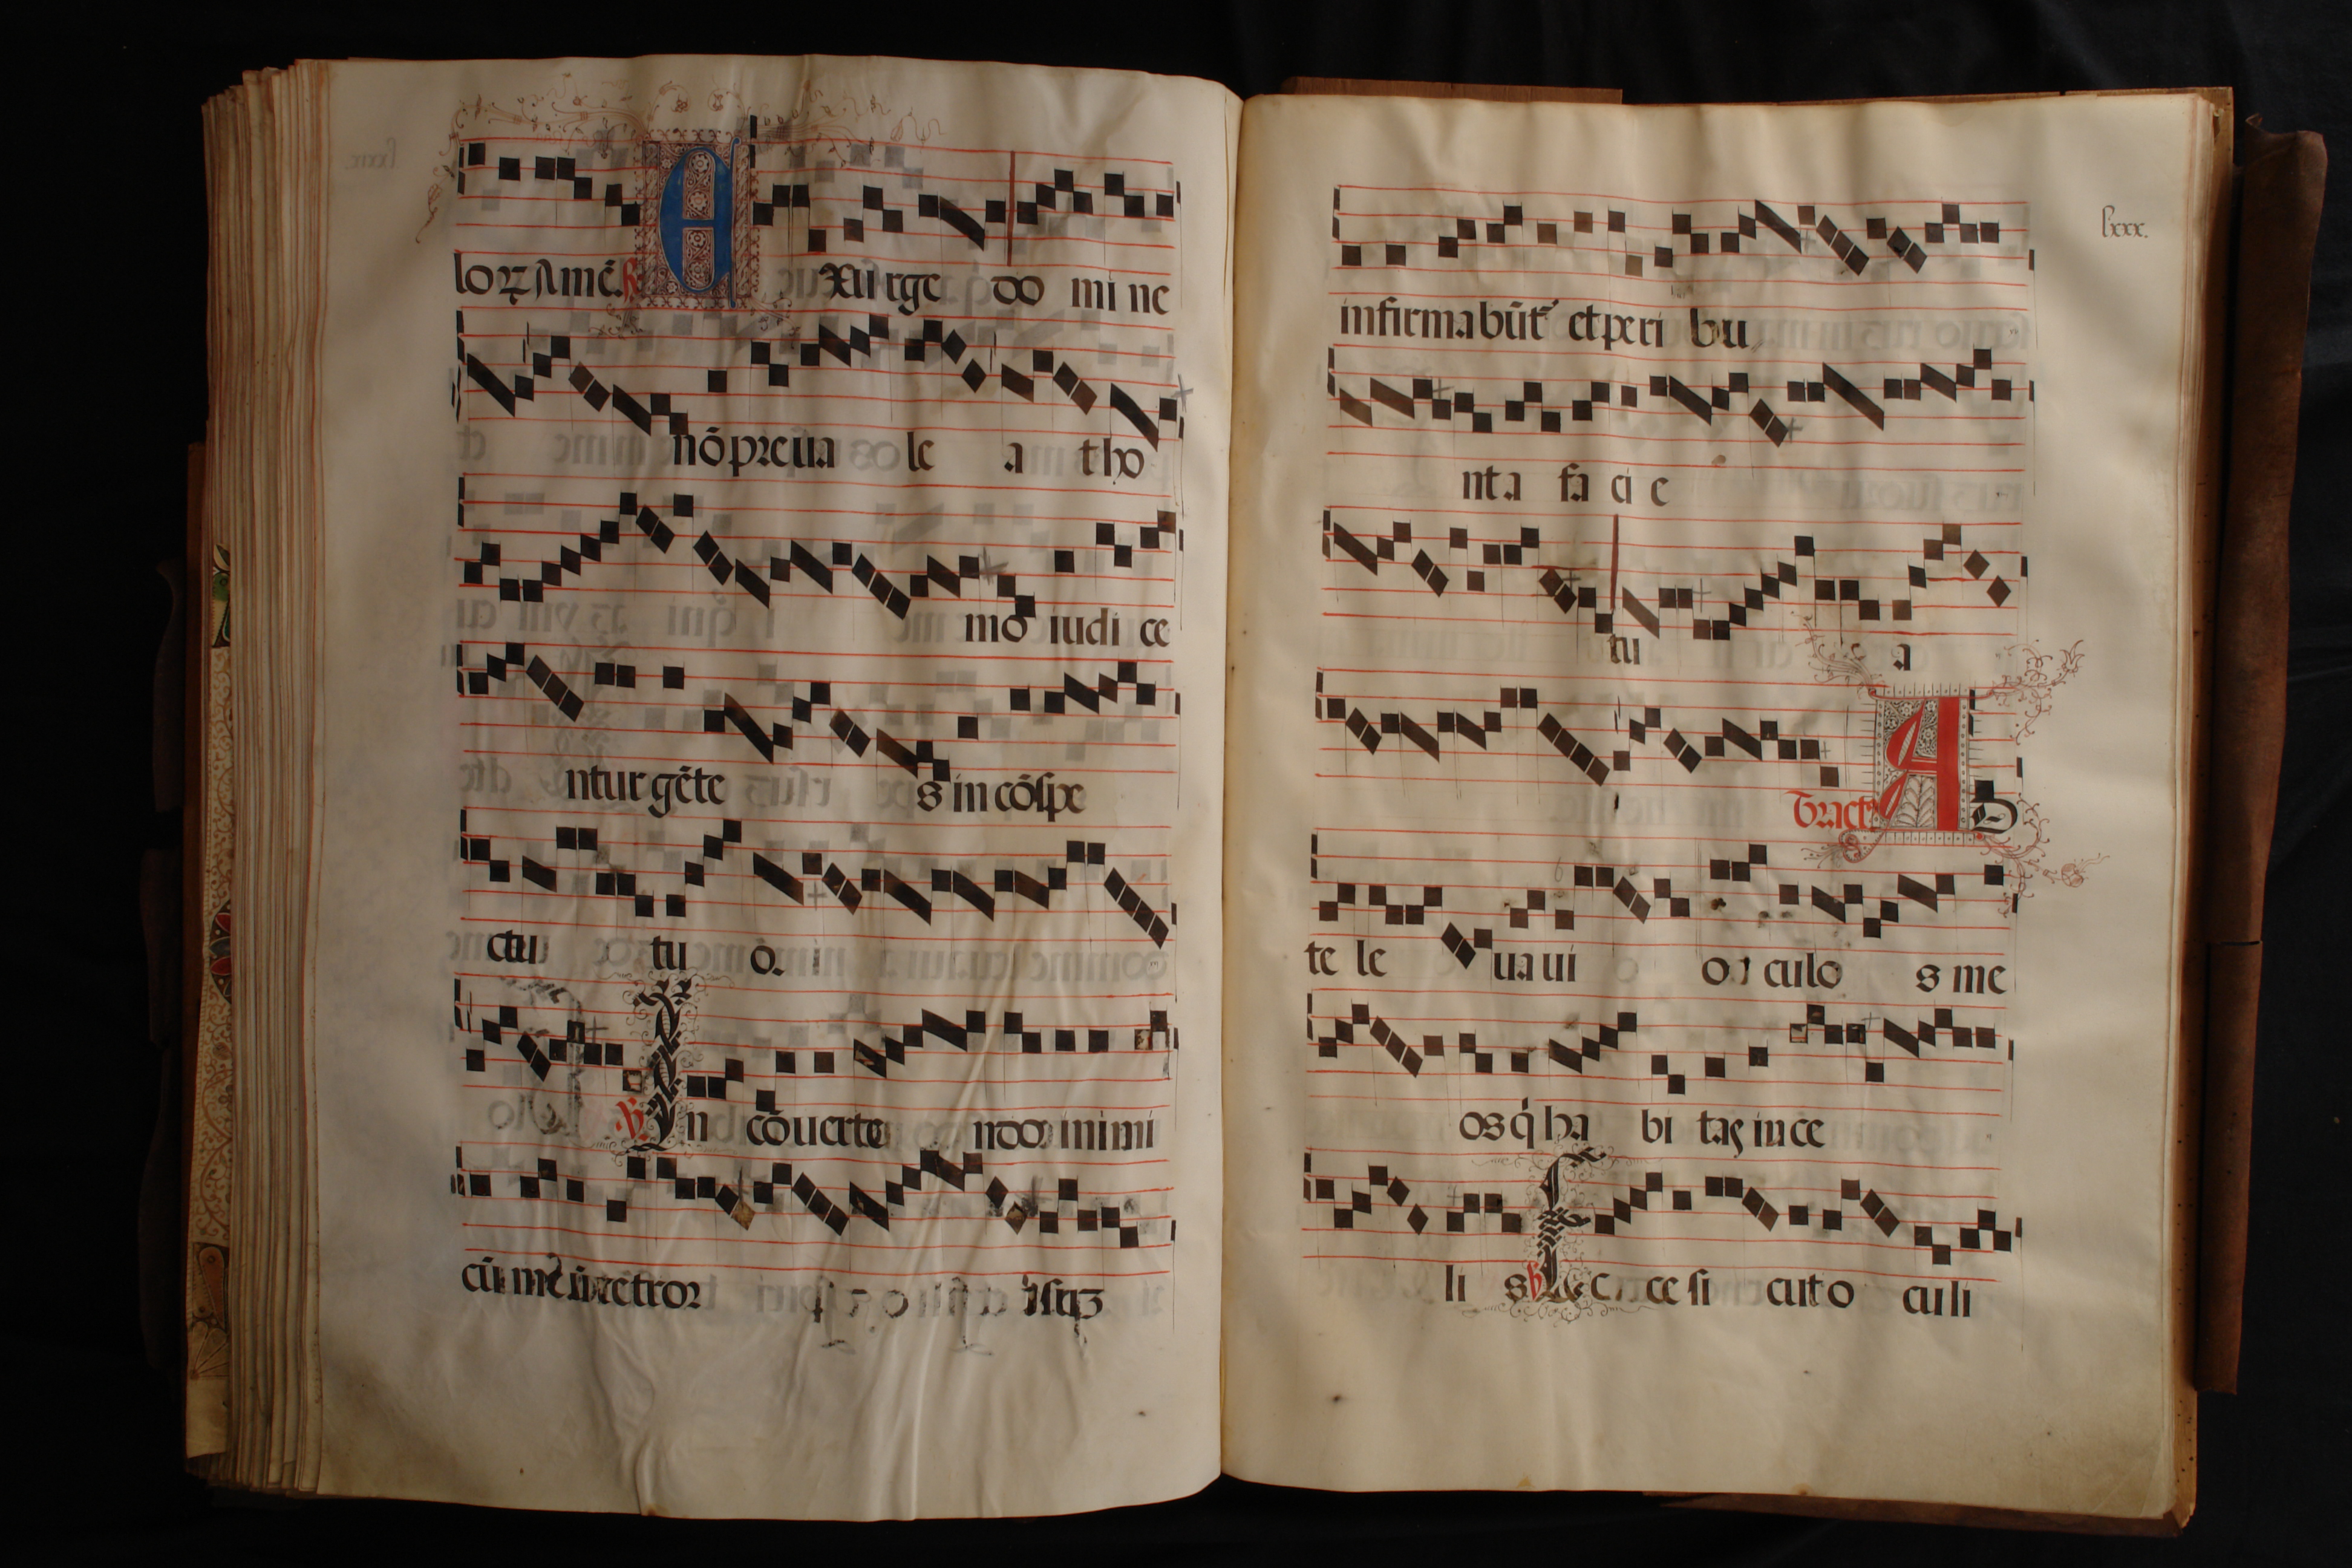 loꝝ Amē. ℟ Exurge do mi ne
nō preua le a t ho
mo iudi ce
ntur gēte s in cōspe
ctu tu o.
℣ In cōuerte ndo inimi
cū meū retror
infirmabūt et peri bu
nt a fa ci e
tu a
Tract⁹ A D
te le uaui o culo s me
os q̇ ha bi tas in ce
li s ℣ Ecce si cut o culi
lxxx.